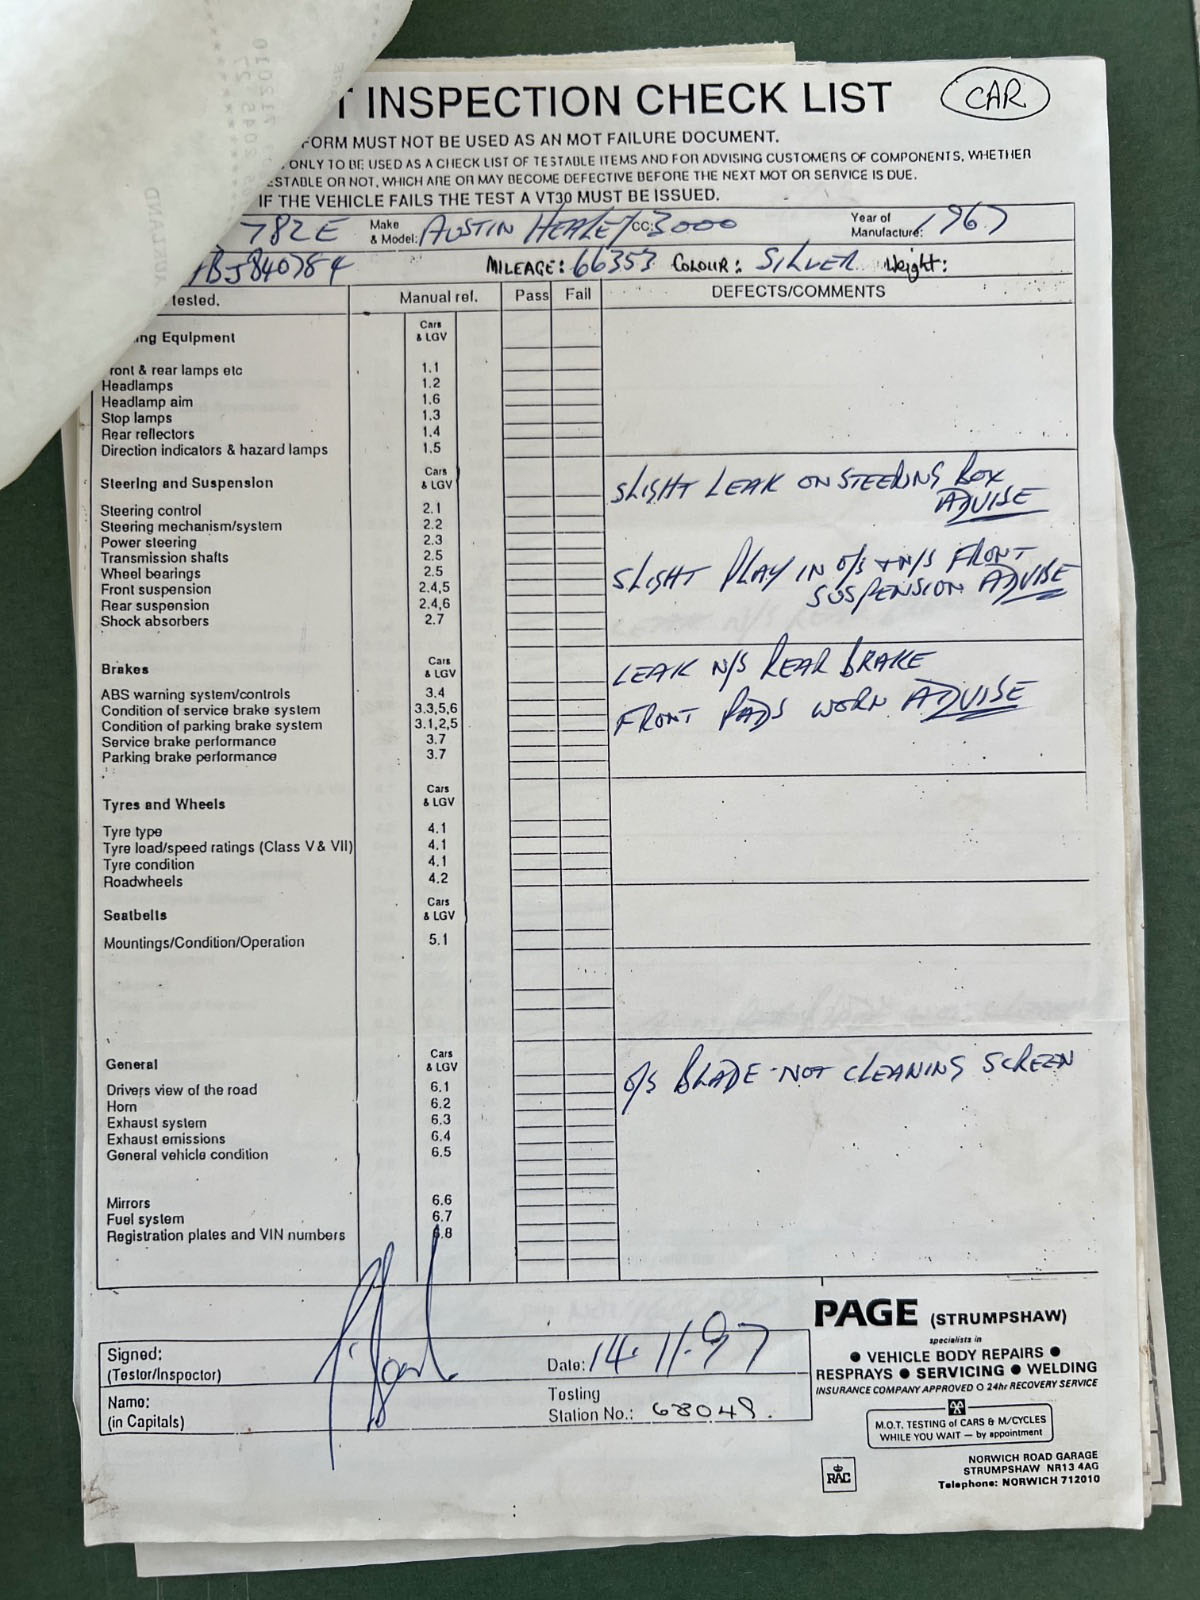 T INSPECTION CHECK LIST
CAR
FORM MUST NOT BE USED AS AN MOT FAILURE DOCUMENT.
ONLY TO BE USED AS A CHECK LIST OF TESTABLE ITEMS AND FOR ADVISING CUSTOMERS OF COMPONENTS, WHETHER
ESTABLE OR NOT, WHICH ARE OR MAY BECOME DEFECTIVE BEFORE THE NEXT MOT OR SERVICE IS DUE.
IF THE VEHICLE FAILS THE TEST A VT30 MUST BE ISSUED.
782E Make & Model: AUSTIN HEALEY CC: 3000 Year of Manufacture: 1967
HBJ840784 MILEAGE: 66353 COLOUR: SILVER Weight:
tested. Manual ref. Pass Fail DEFECTS/COMMENTS
ng Equipment Cars & LGV
ront & rear lamps etc 1.1
Headlamps 1.2
Headlamp aim 1.6
Stop lamps 1.3
Rear reflectors 1.4
Direction indicators & hazard lamps 1.5
Steering and Suspension Cars & LGV
SLIGHT LEAK ON STEERING BOX
ADVISE
Steering control 2.1
Steering mechanism/system 2.2
Power steering 2.3
Transmission shafts 2.5
Wheel bearings 2.5
Front suspension 2,4,5
Rear suspension 2,4,6
Shock absorbers 2.7
SLIGHT PLAY IN O/S + N/S FRONT
SUSPENSION ADVISE
Brakes Cars & LGV
LEAK N/S REAR BRAKE
ABS warning system/controls 3.4
Condition of service brake system 3.3,5,6
Condition of parking brake system 3.1,2,5
Service brake performance 3.7
Parking brake performance 3.7
FRONT PADS WORN ADVISE
Tyres and Wheels Cars & LGV
Tyre type 4.1
Tyre load/speed ratings (Class V & VII) 4.1
Tyre condition 4.1
Roadwheels 4.2
Seatbelts Cars & LGV
Mountings/Condition/Operation 5.1
General Cars & LGV
O/S BLADE NOT CLEANING SCREEN
Drivers view of the road 6.1
Horn 6.2
Exhaust system 6.3
Exhaust emissions 6.4
General vehicle condition 6.5
Mirrors 6.6
Fuel system 6.7
Registration plates and VIN numbers 6.8
Signed:
(Tester/Inspector)
Date: 14.11.97
Name:
(in Capitals)
Testing
Station No.: 68049.
PAGE (STRUMPSHAW)
specialists in
● VEHICLE BODY REPAIRS ●
RESPRAYS ● SERVICING ● WELDING
INSURANCE COMPANY APPROVED O 24hr RECOVERY SERVICE
M.O.T. TESTING of CARS & M/CYCLES
WHILE YOU WAIT — by appointment
RAC
NORWICH ROAD GARAGE
STRUMPSHAW NR13 4AG
Telephone: NORWICH 712010